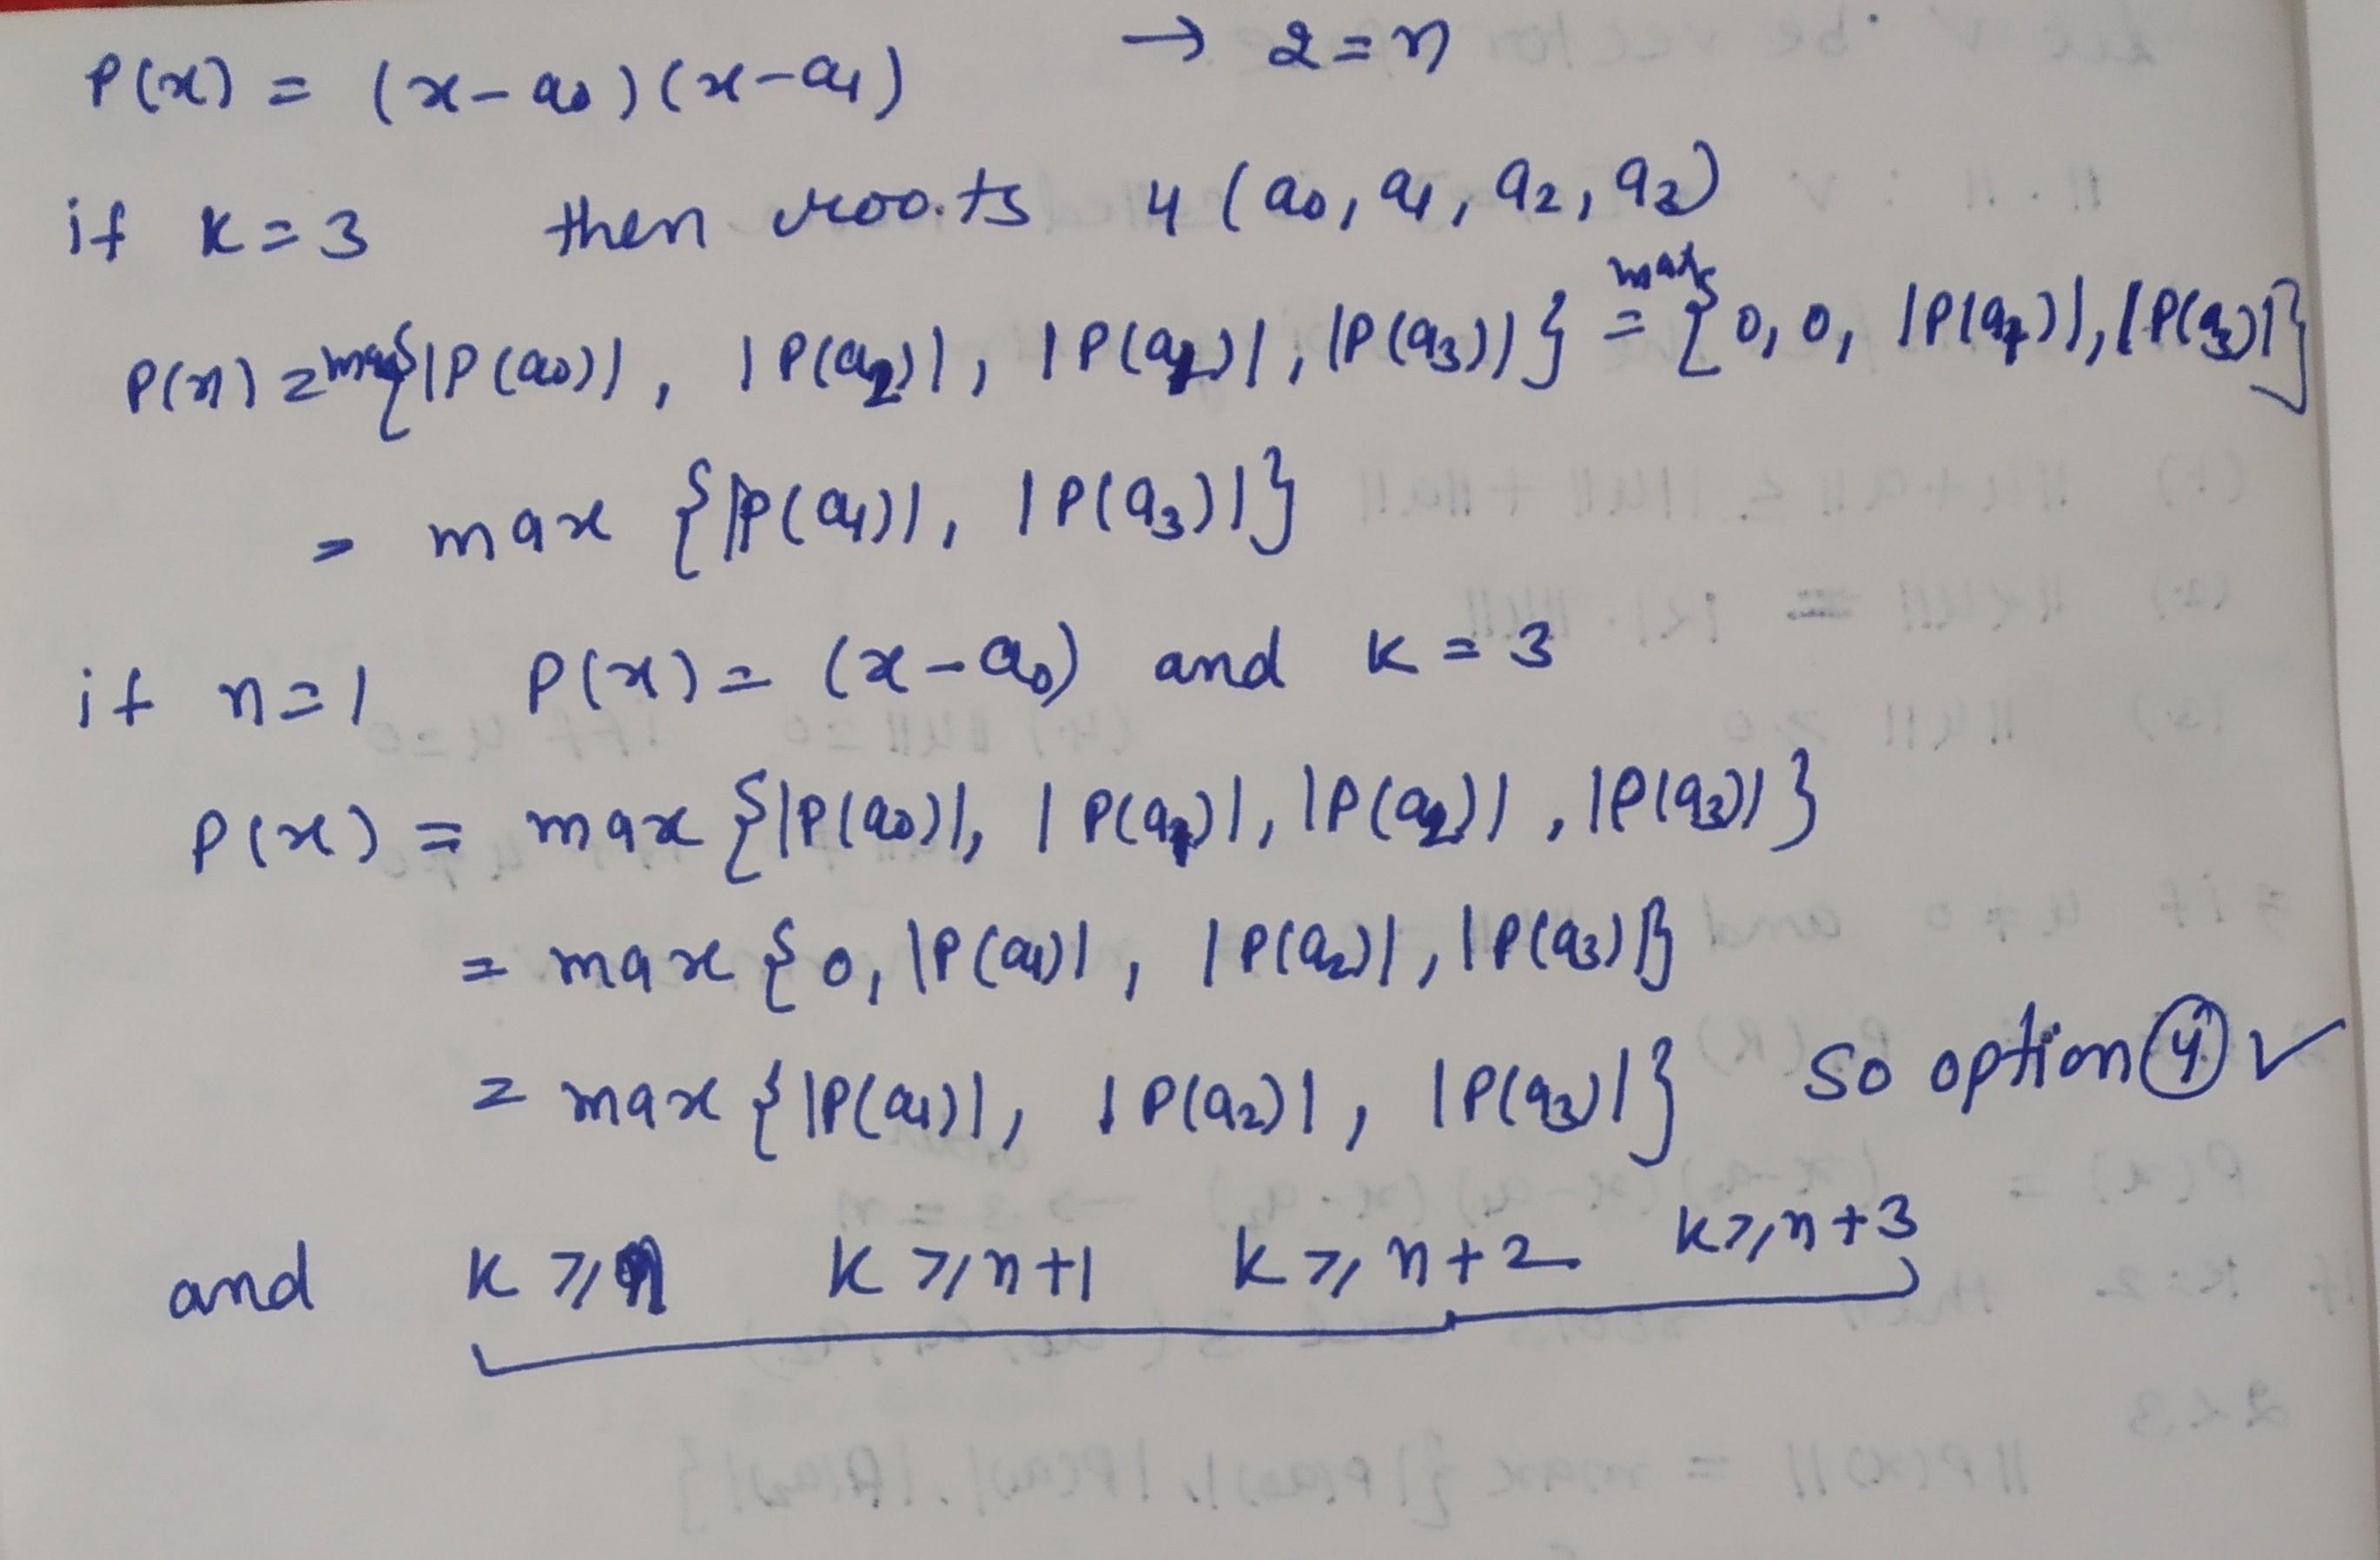 P(x) = (x-a₀)(x-a₁) → 2=n
if K=3 then roots 4 (a₀, a₁, a₂, a₃)
P(x) = max{|P(a₀)|, |P(a₂)|, |P(a₁)|, |P(a₃)|} = max{0, 0, |P(a₁)|, |P(a₃)|}
= max {|P(a₁)|, |P(a₃)|}
if n=1 P(x) = (x-a₀) and K=3
P(x) = max {|P(a₀)|, |P(a₁)|, |P(a₂)|, |P(a₃)|}
= max {0, |P(a₁)|, |P(a₂)|, |P(a₃)|}
= max {|P(a₁)|, |P(a₂)|, |P(a₃)|} so option ④ ✓
and K ≥ n K ≥ n+1 K ≥ n+2 K ≥ n+3